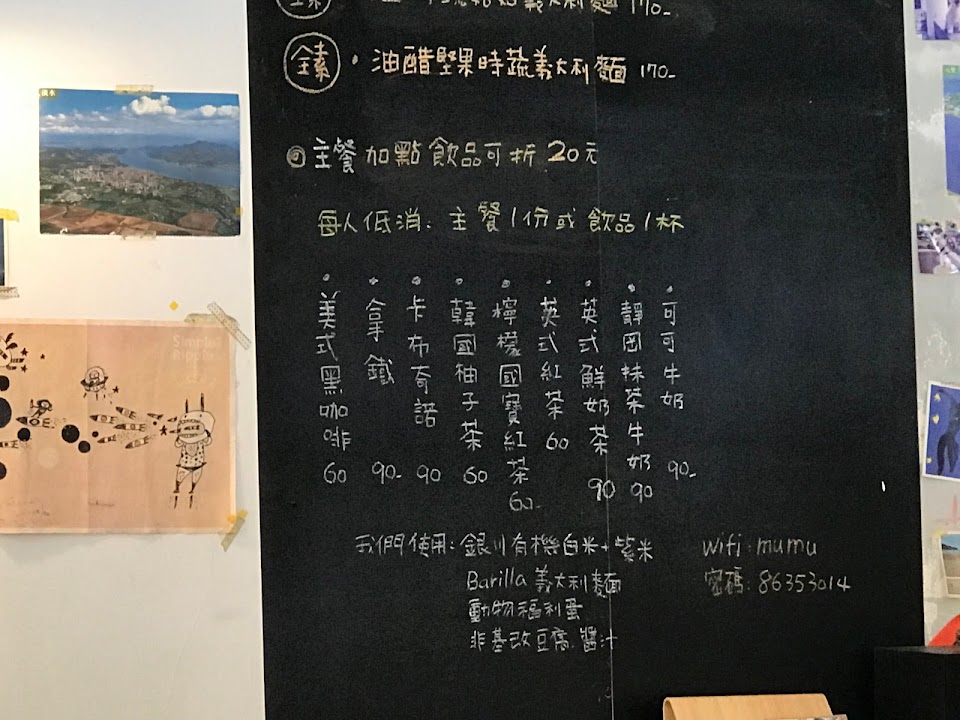 義大利麵 170-
全素 · 油醋堅果時蔬義大利麵 170-
主餐加點飲品可折20元
每人低消: 主餐1份或飲品1杯
美式黑咖啡 60
拿鐵 90-
卡布奇諾 90
韓國柚子茶 60
檸檬國寶紅茶 60-
英式紅茶 60
英式鮮奶茶 90
靜岡抹茶牛奶 90
可可牛奶 90-
我們使用: 銀川有機白米+紫米
Barilla 義大利麵
動物福利蛋
非基改豆腐.醬汁
wifi: mumu
密碼: 86353014
淡水
Simple